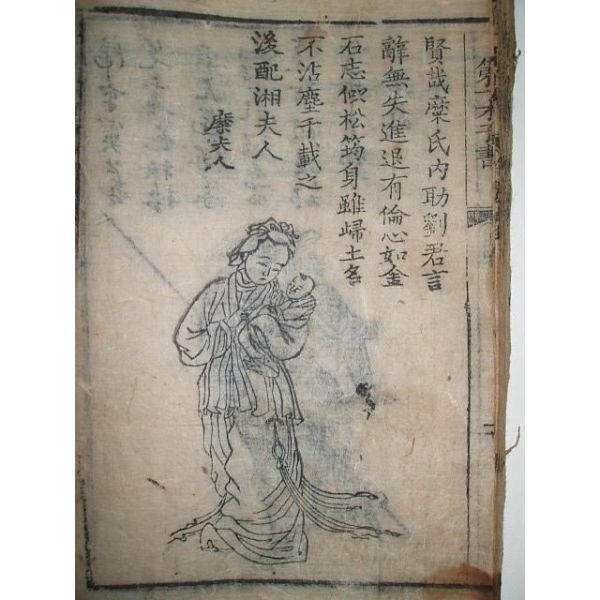 第一才子書
賢哉糜氏内助劉君言
辭無失進退有倫心如金
石志似松筠身雖歸土名
不沾塵千載之
後配湘夫人
糜夫人